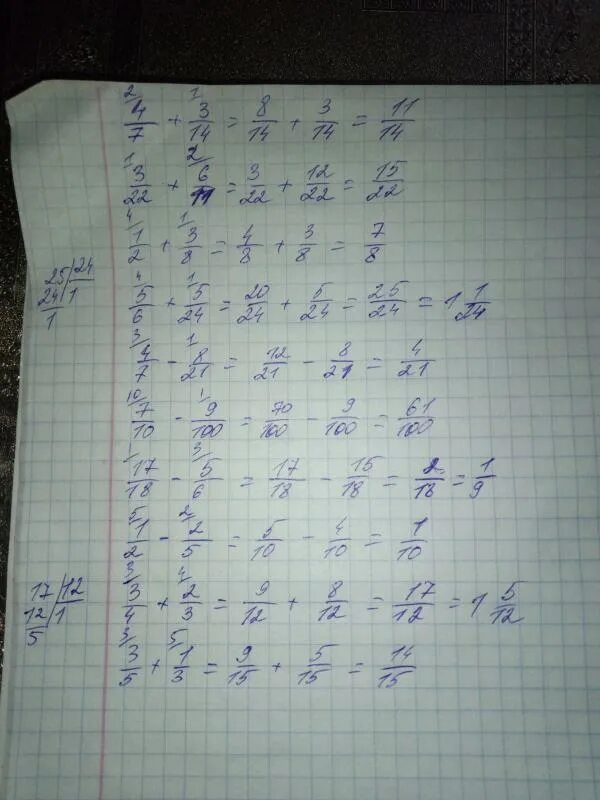 2/ 4/7 + 1/ 3/14 = 8/14 + 3/14 = 11/14
1/ 3/22 + 2/ 6/11 = 3/22 + 12/22 = 15/22
4/ 1/2 + 1/ 3/8 = 4/8 + 3/8 = 7/8
25 | 24
24 | 1
1
4/ 5/6 + 1/ 5/24 = 20/24 + 5/24 = 25/24 = 1 1/24
3/ 4/7 - 1/ 8/21 = 12/21 - 8/21 = 4/21
10/ 7/10 - 1/ 9/100 = 70/100 - 9/100 = 61/100
1/ 17/18 - 3/ 5/6 = 17/18 - 15/18 = 2/18 = 1/9
5/ 1/2 - 2/ 2/5 = 5/10 - 4/10 = 1/10
17 | 12
12 | 1
5
3/ 3/4 + 4/ 2/3 = 9/12 + 8/12 = 17/12 = 1 5/12
3/ 3/5 + 5/ 1/3 = 9/15 + 5/15 = 14/15